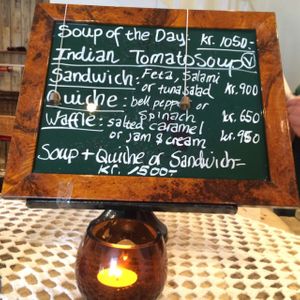 Soup of the Day: kr. 1050.-
Indian Tomato Soup V
Sandwich: Feta, Salami
or tuna salad kr. 900
Quiche: bell pepper or
Spinach kr. 650
Waffle: salted caramel
or jam & cream kr. 950
Soup + Quiche or Sandwich=
kr. 1500-